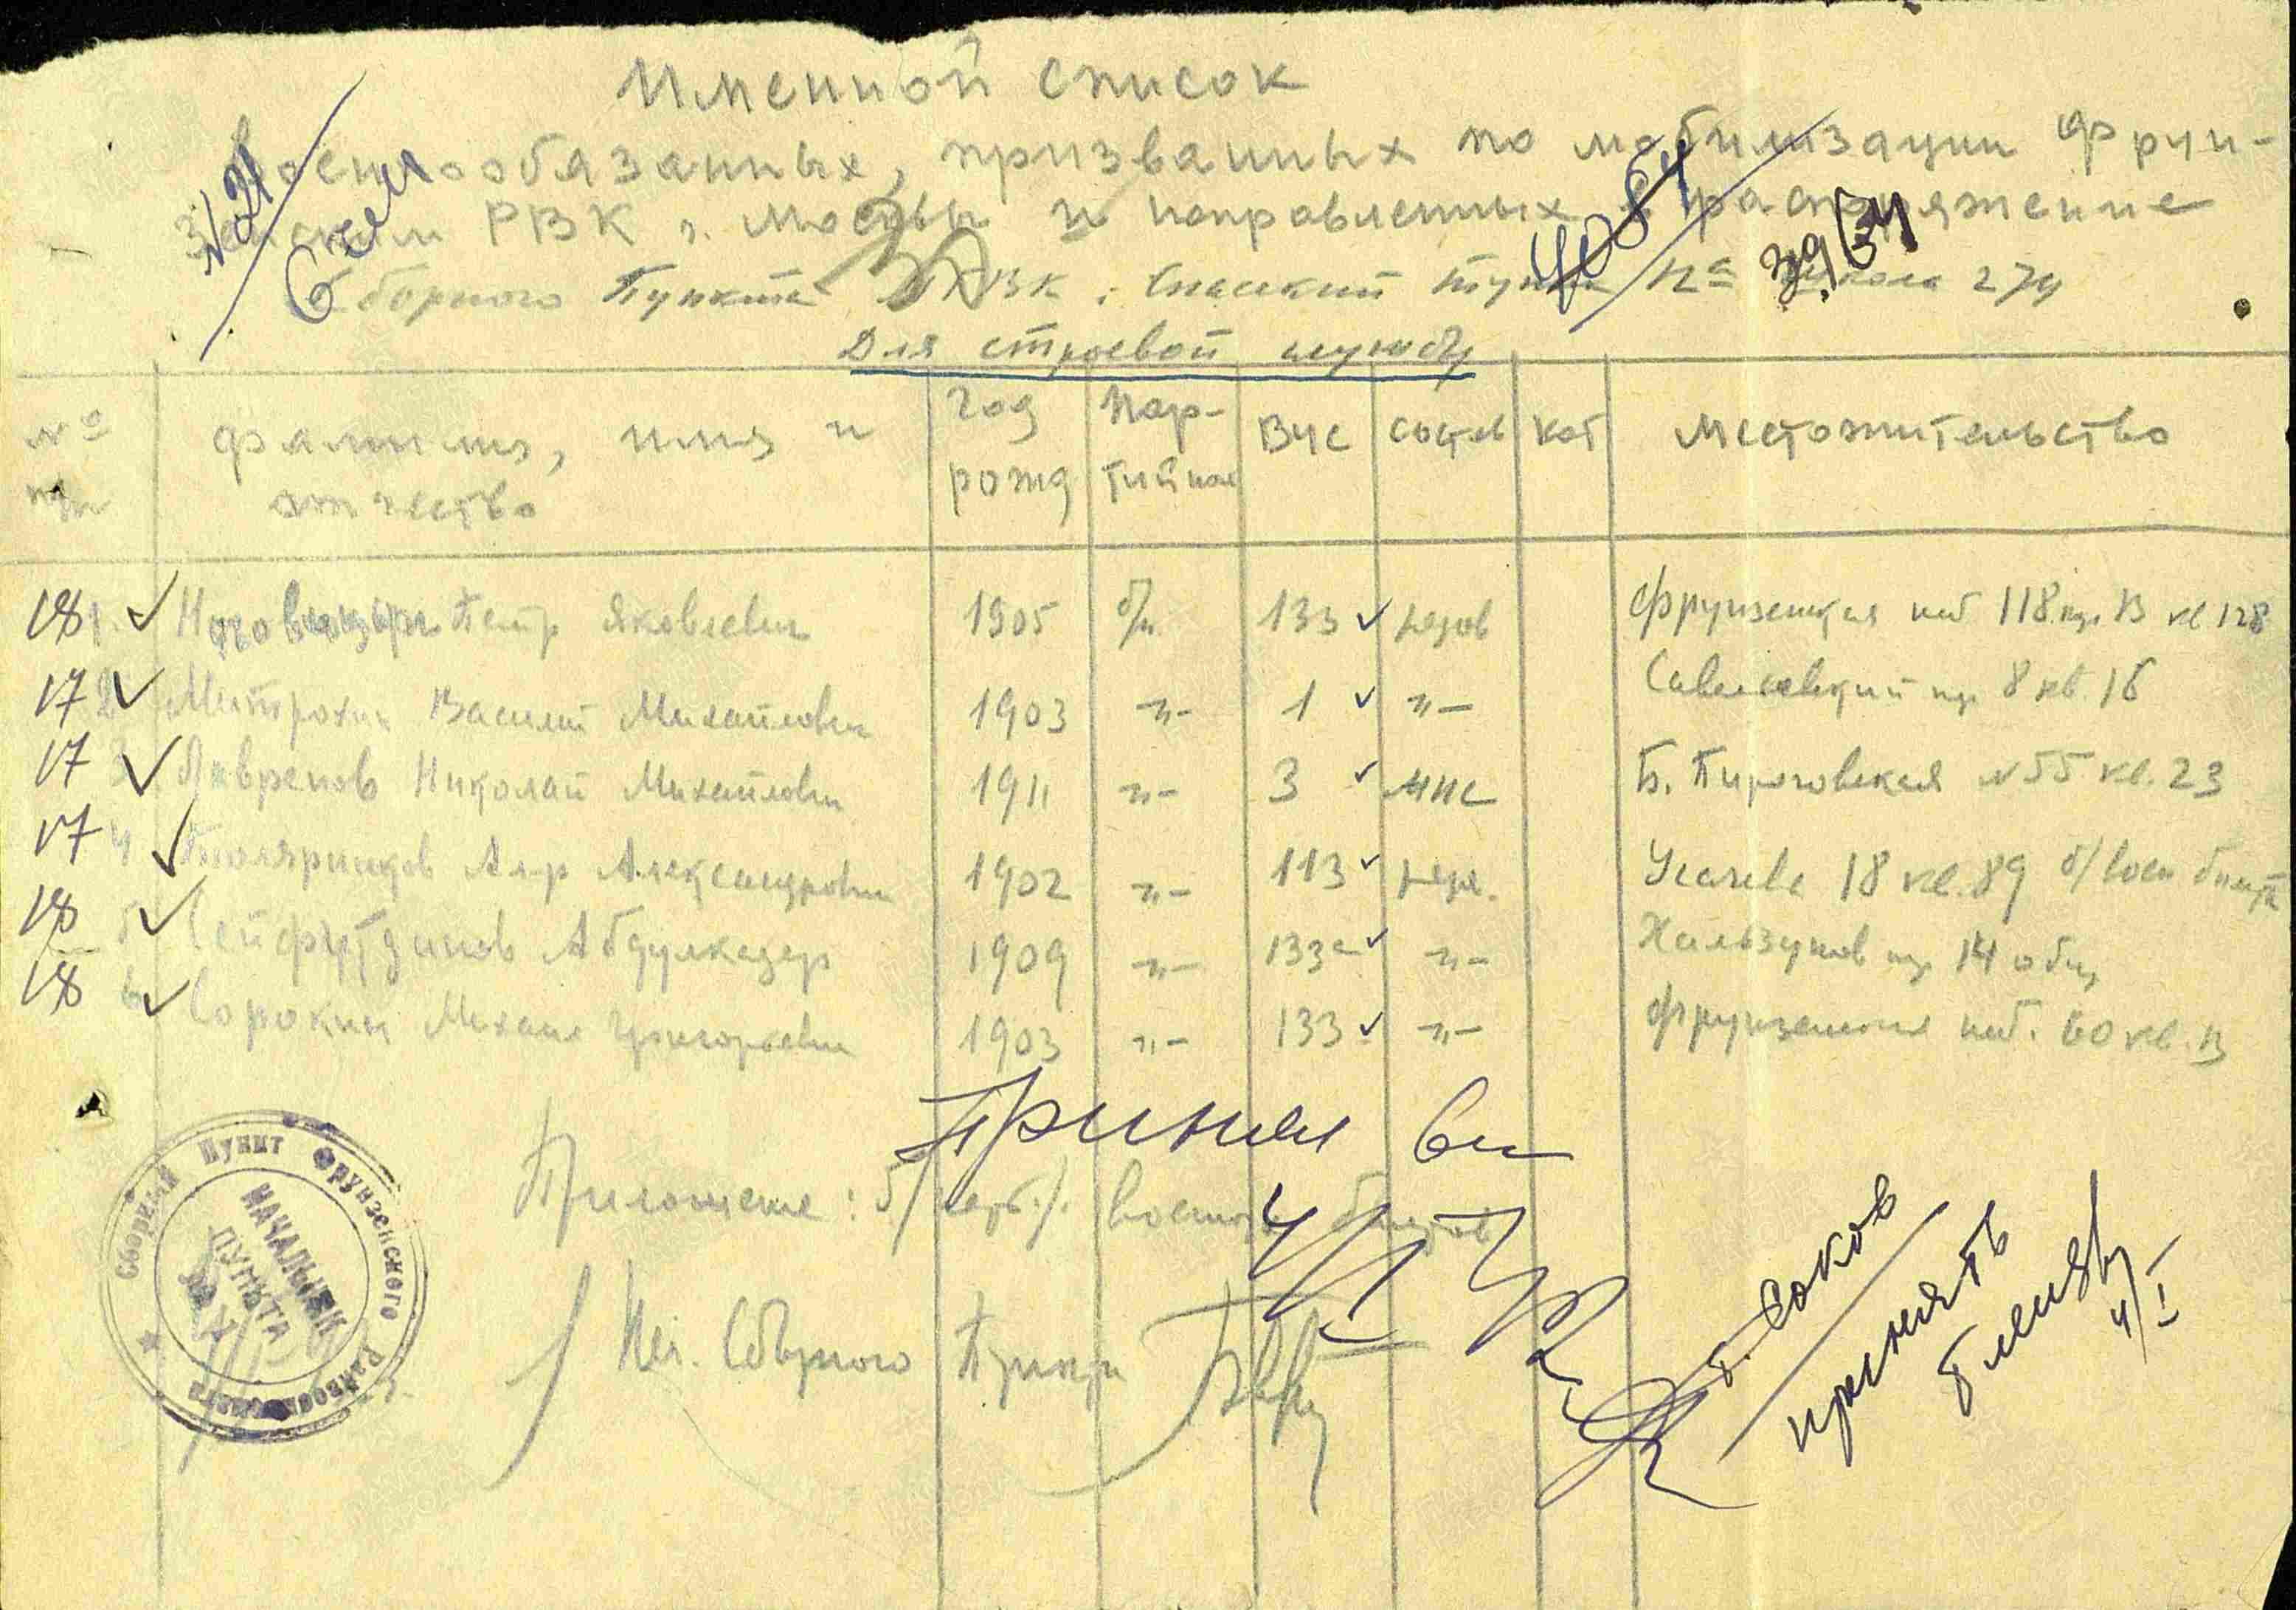 Именной список
военнообязанных, призванных по мобилизации Фрун-
зенским РВК г. Москвы и направленных в распоряжение
Сборного Пункта РВК, Спасский туп школа 279
Для строевой службы
№ 21
6 чел
4084
39/34
№ п/п
фамилия, имя и отчество
год рожд
пар-тийная
ВУС
состав
кат
Местожительство
18 1. Петр Яковлевич 1905 б/п 133 рядов Фрунзенская наб 118 кор. В кв 128
17 2 Митрохин Василий Михайлович 1903 -"- 1 -"- Савельевский пер 8 кв. 16
17 3 Николай Михайлович 1911 -"- 3 мнс Б. Пироговская № 55 кв. 23
17 4 Столяринков Ал-р Александрович 1902 -"- 113 ряд. Усачева 18 кв. 89 б/воен билета
18 5 Сейфутдинов Абдулкадер 1909 -"- 133 -"- Хользунов пер 14 общ
18 6 Сорокин Михаил Григорьевич 1903 -"- 133 -"- Фрунзенская наб. 60 кв. В
Принял
Приложение: 5/ военных билетов
Нач. Сборного Пункта
т. Соков
принять
4/I
Сборный Пункт Фрунзенского Райвоенкомата
НАЧАЛЬНИК
ПУНКТА